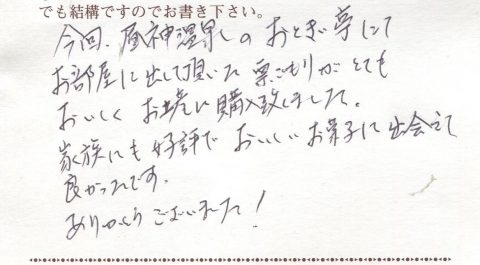 でも結構ですのでお書き下さい。
今回、昼神温泉の おとぎ亭にて
お部屋に出して頂いた 栗ごもりがとても
おいしく お土産に購入致しました。
家族にも好評で おいしいお菓子に出会えて
良かったです。
ありがとうございました!